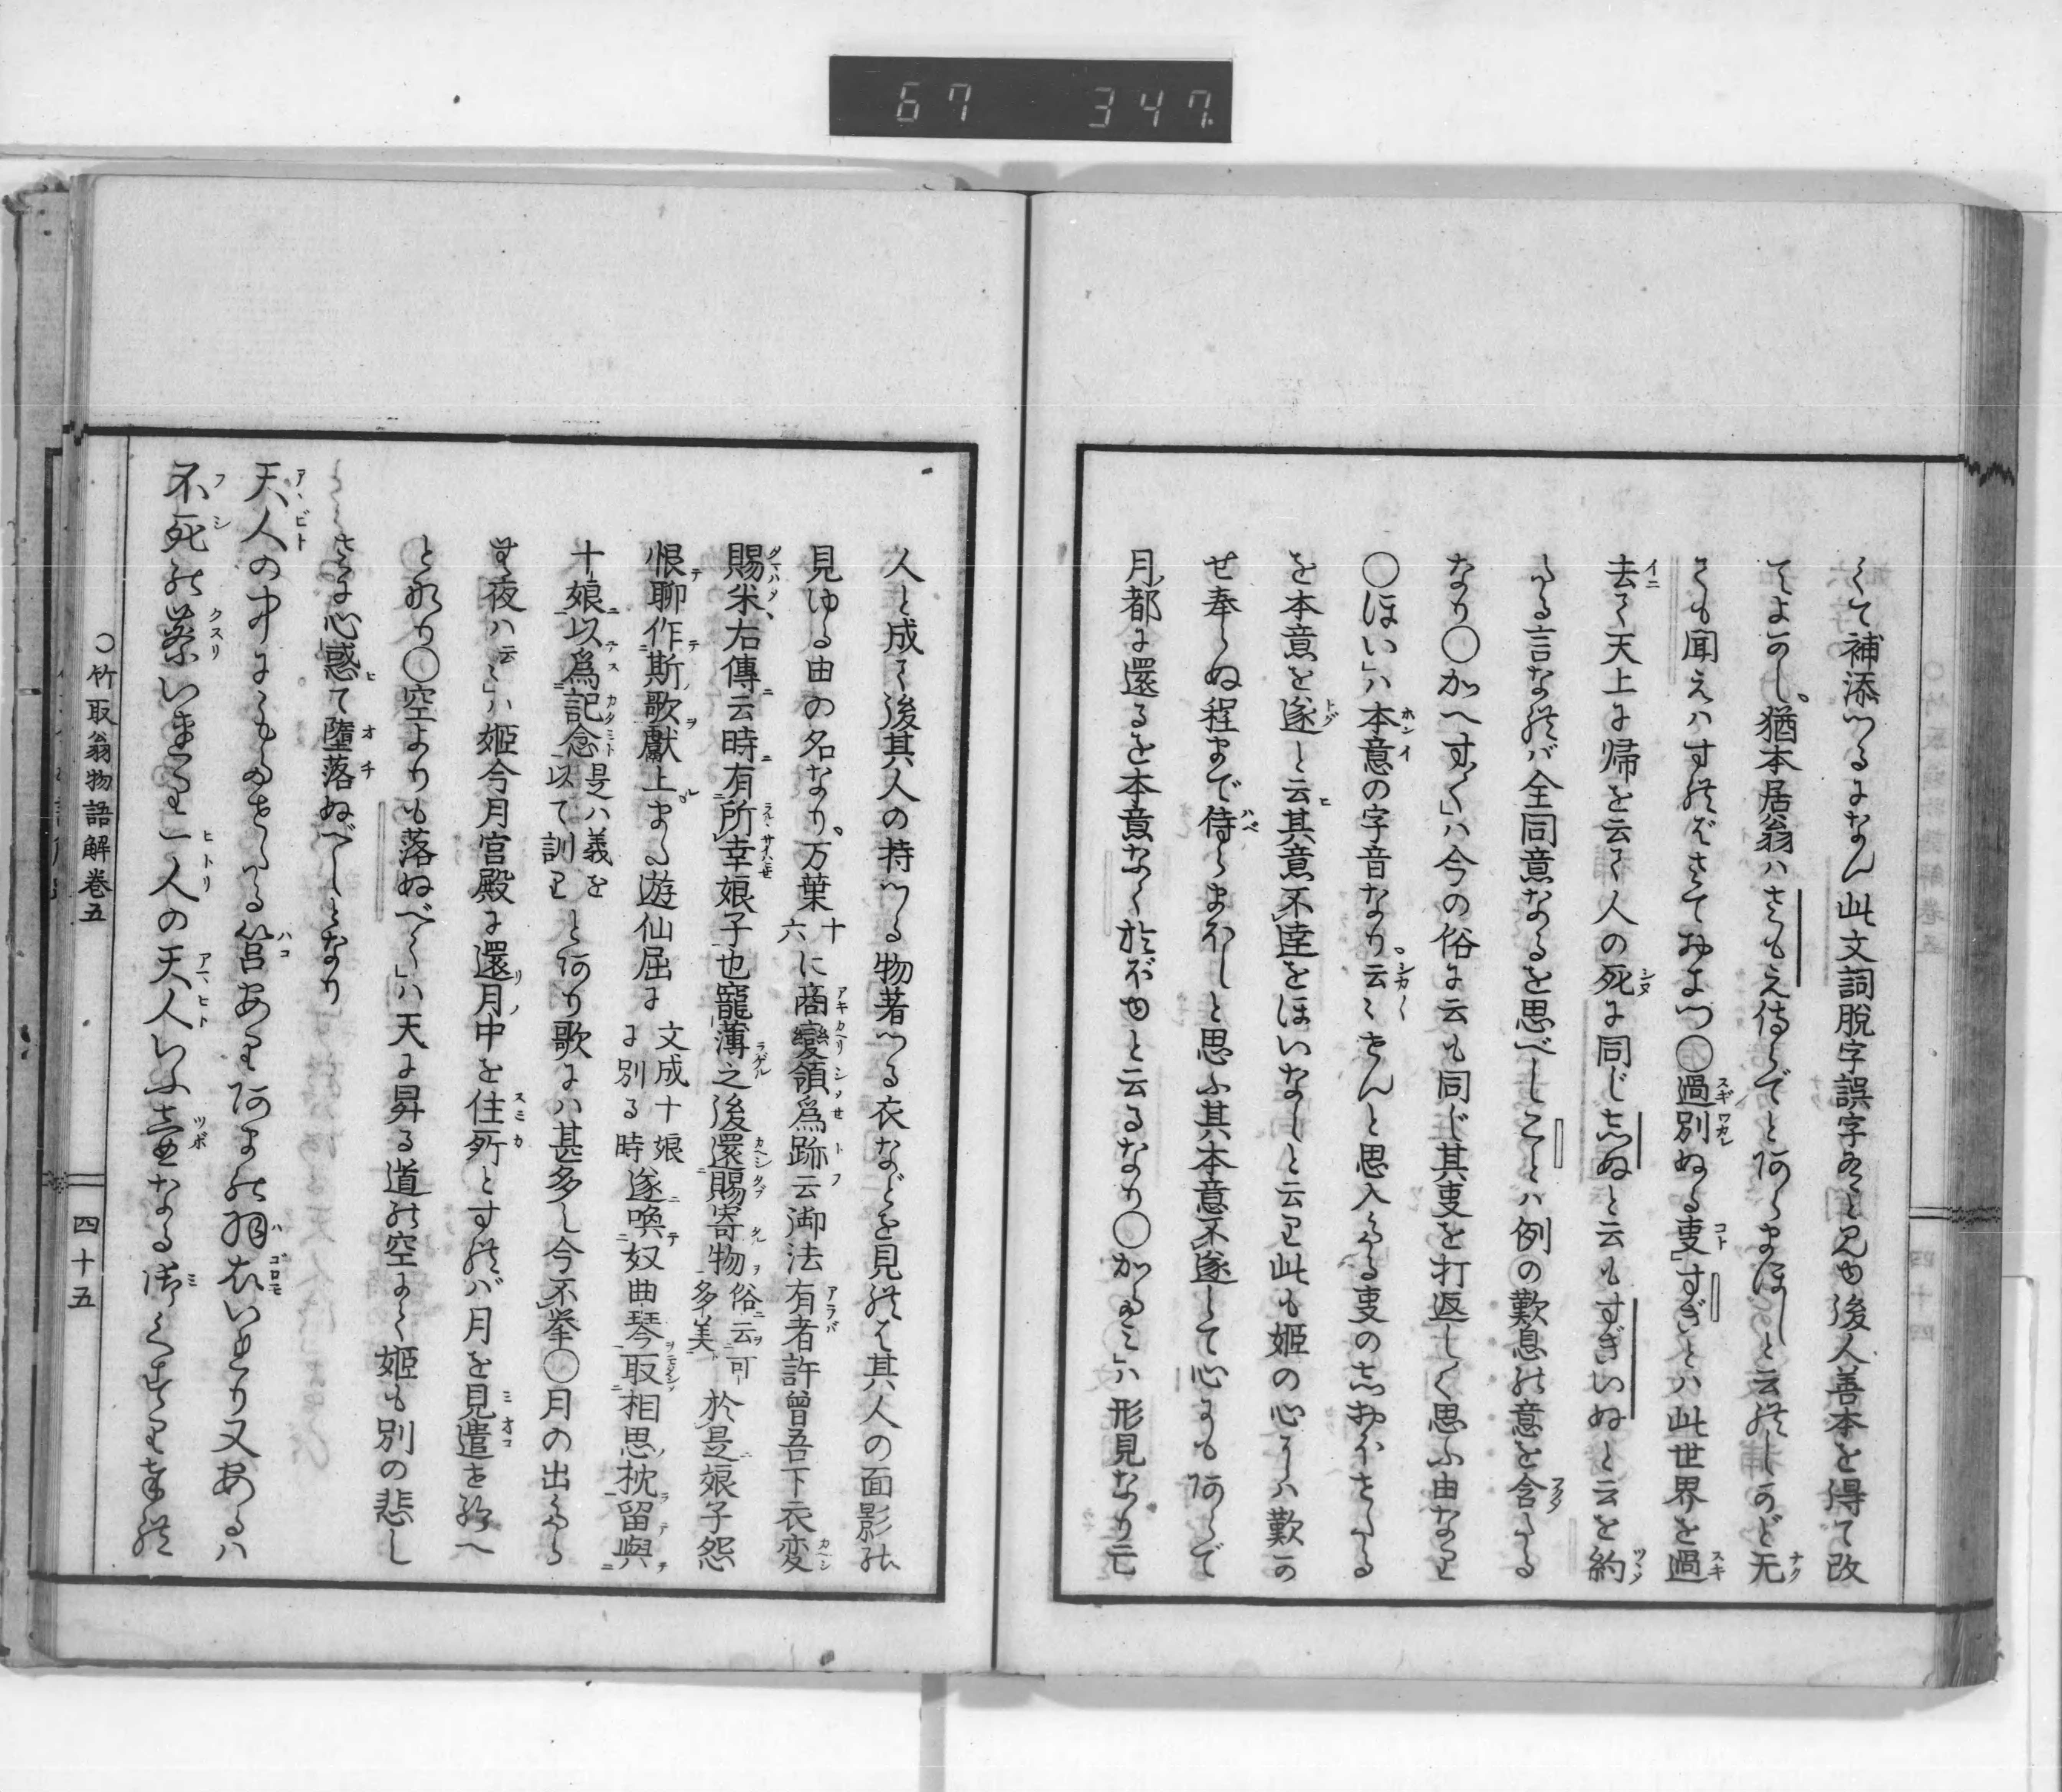 67 347
くて補添つるになん此文詞脱字誤字有と見ゆ後人善本を得て改
てよかし猶本居翁ハさらもえ侍らでと阿らまほしと云れしかど无
さも聞えハすれどさておきつ○過別ぬる事」すぎとハ此世界を過
去く天上に帰を云く人の死に同じ志ぬと云もすぎいぬと云を約
たる言なれバ全同意なるを思べしことハ例の歎息の意を含たる
なり○かへす〱」ハ今の俗に云も同じ其事を打返しく思ふ由なり
○ほい」ハ本意の字音なり云〻せんと思入たる事の志おふせたる
を本意を遂と云其意不達をほいなしと云り此も姫の心にハ歎か
せ奉らぬ程まで侍らまほしと思ふ其本意不遂して心にも阿らで
月都に還るを本意なく於ぼゆと云るなり○かたみ」ハ形見なり亡
人と成て後其人の持つる物著つる衣などを見れば其人の面影の
見ゆる由の名なり万葉十六に商變領爲跡云御法有者許曽吾下衣変
賜米右傳云時有所幸娘子也寵薄之後還賜寄物俗云可多美於是娘子怨
恨聊作斯歌獻上また遊仙屈に文成十娘に別る時遂喚奴曲琴取相思枕留與
十娘以爲記念是ハ義を以て訓りと阿り歌にハ甚多し今不挙○月の出たら
む夜ハ云〻」ハ姫今月宮殿に還月中を住所とすれバ月を見遣を給へ
となり○空よりも落ぬべく」ハ天に昇る道の空にく姫も別の悲し
さに心惑て墮落ぬべしとなり
天人の中にもたせたる筥あり阿まの羽衣いれり又あるハ
不死の藥いれり一人の天人いふ壺なる御くすり奉れ
○竹取翁物語解卷五
四十五